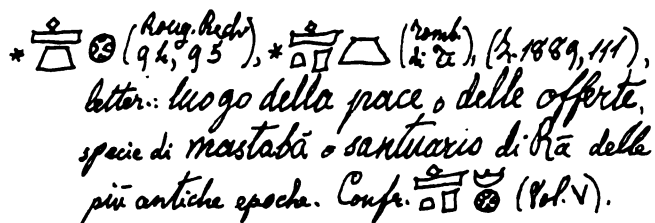 * 𓊵𓉴𓊖 (Roug. Rech. 94, 95), * 𓊵𓏏𓊪𓉴 (tomb. di Ti), (Z. 1889, 111),
letter.: luogo della pace o delle offerte,
specie di mastabā o santuario di Rā delle
più antiche epoche. Confr. 𓊵𓏏𓊪𓎟𓊖 (Vol. V).